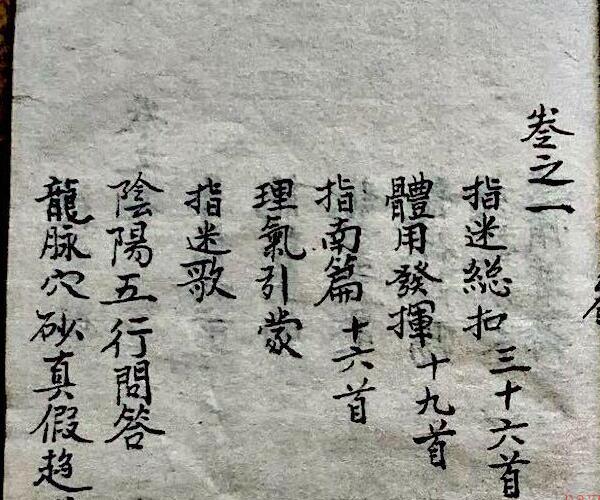 卷之一
指迷総扣三十六首
體用發揮十九首
指南篇十六首
理氣引蒙
指迷歌
陰陽五行問答
龍脉穴砂真假趨